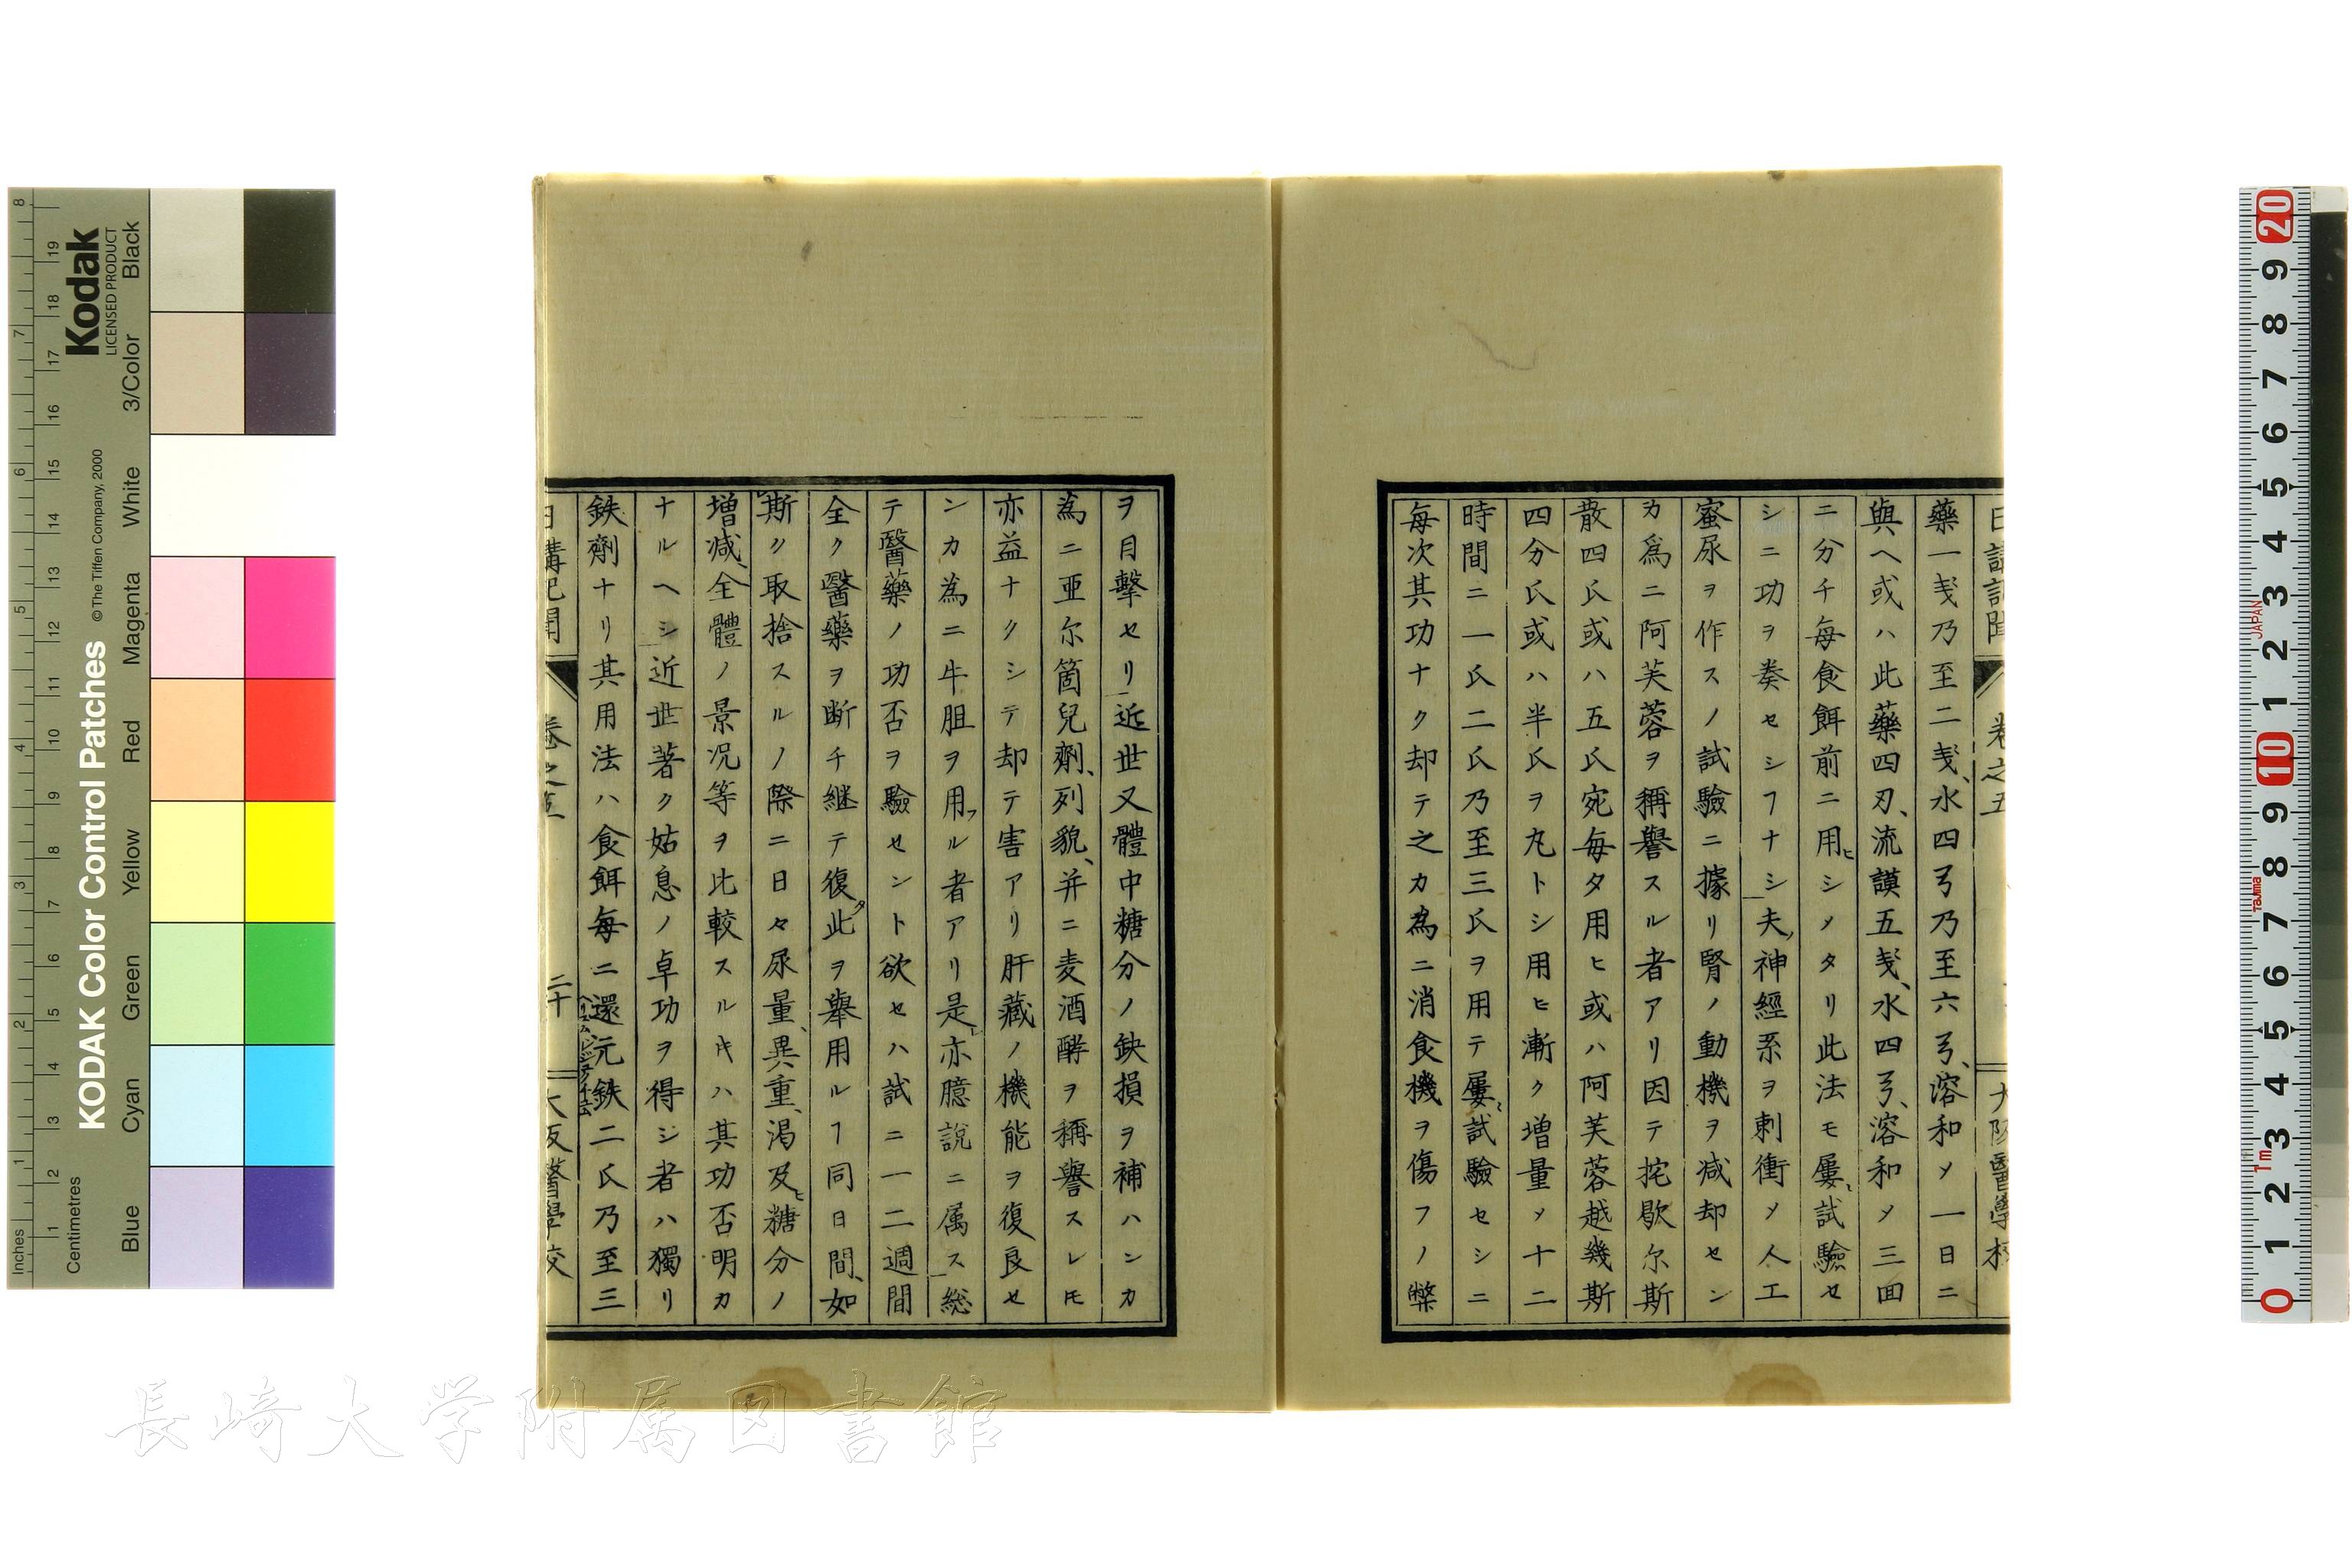 日講記聞 卷之五 大阪醫學校
藥一戔乃至二戔、水四弓乃至六弓、溶和メ一日ニ
與ヘ或ハ此藥四刃、流謨五戔、水四弓、溶和メ三回
ニ分チ毎食餌前ニ用ヒシメタリ此法モ屢試驗セ
シニ功ヲ奏セシヿナシ夫神經系ヲ刺衝メ人工
蜜尿ヲ作スノ試驗ニ據リ腎ノ動機ヲ減却セン
カ爲ニ阿芙蓉ヲ稱譽スル者アリ因テ挓歇尔斯
散四氏或ハ五氏宛毎夕用ヒ或ハ阿芙蓉越幾斯
四分氏或ハ半氏ヲ丸トシ用ヒ漸ク增量メ十二
時間ニ一氏二氏乃至三氏ヲ用テ屢試驗セシニ
毎次其功ナク却テ之カ為ニ消食機ヲ傷フノ弊
ヲ目擊セリ近世又體中糖分ノ缺損ヲ補ハンカ
為ニ亜尔箇兒劑、列貌、并ニ麦酒酵ヲ稱譽スレ𪜈
亦益ナクシテ却テ害アリ肝藏ノ機能ヲ復良セ
ンカ為ニ牛胆ヲ用フル者アリ是亦臆說ニ属ス総
テ醫藥ノ功否ヲ驗セント欲セハ試ニ一二週間
全ク醫藥ヲ断チ継テ復タ此ヲ擧用ルヿ同日間、如
斯ク取捨スルノ際ニ日々尿量、異重、渇及ヒ糖分ノ
增減、全體ノ景况等ヲ比較スルキハ其功否明カ
ナルヘシ近世著ク姑息ノ卓功ヲ得シ者ハ獨リ
鉄劑ナリ其用法ハ食餌毎ニ還元鉄二氏乃至三
日講記聞 卷之五 二十 大阪醫學校
Kodak
LICENSED PRODUCT
KODAK Color Control Patches
© The Tiffen Company, 2000
Inches
Centimetres
Blue Cyan Green Yellow Red Magenta White 3/Color Black
JAPAN
Tajima
1m
長崎大学附属図書館